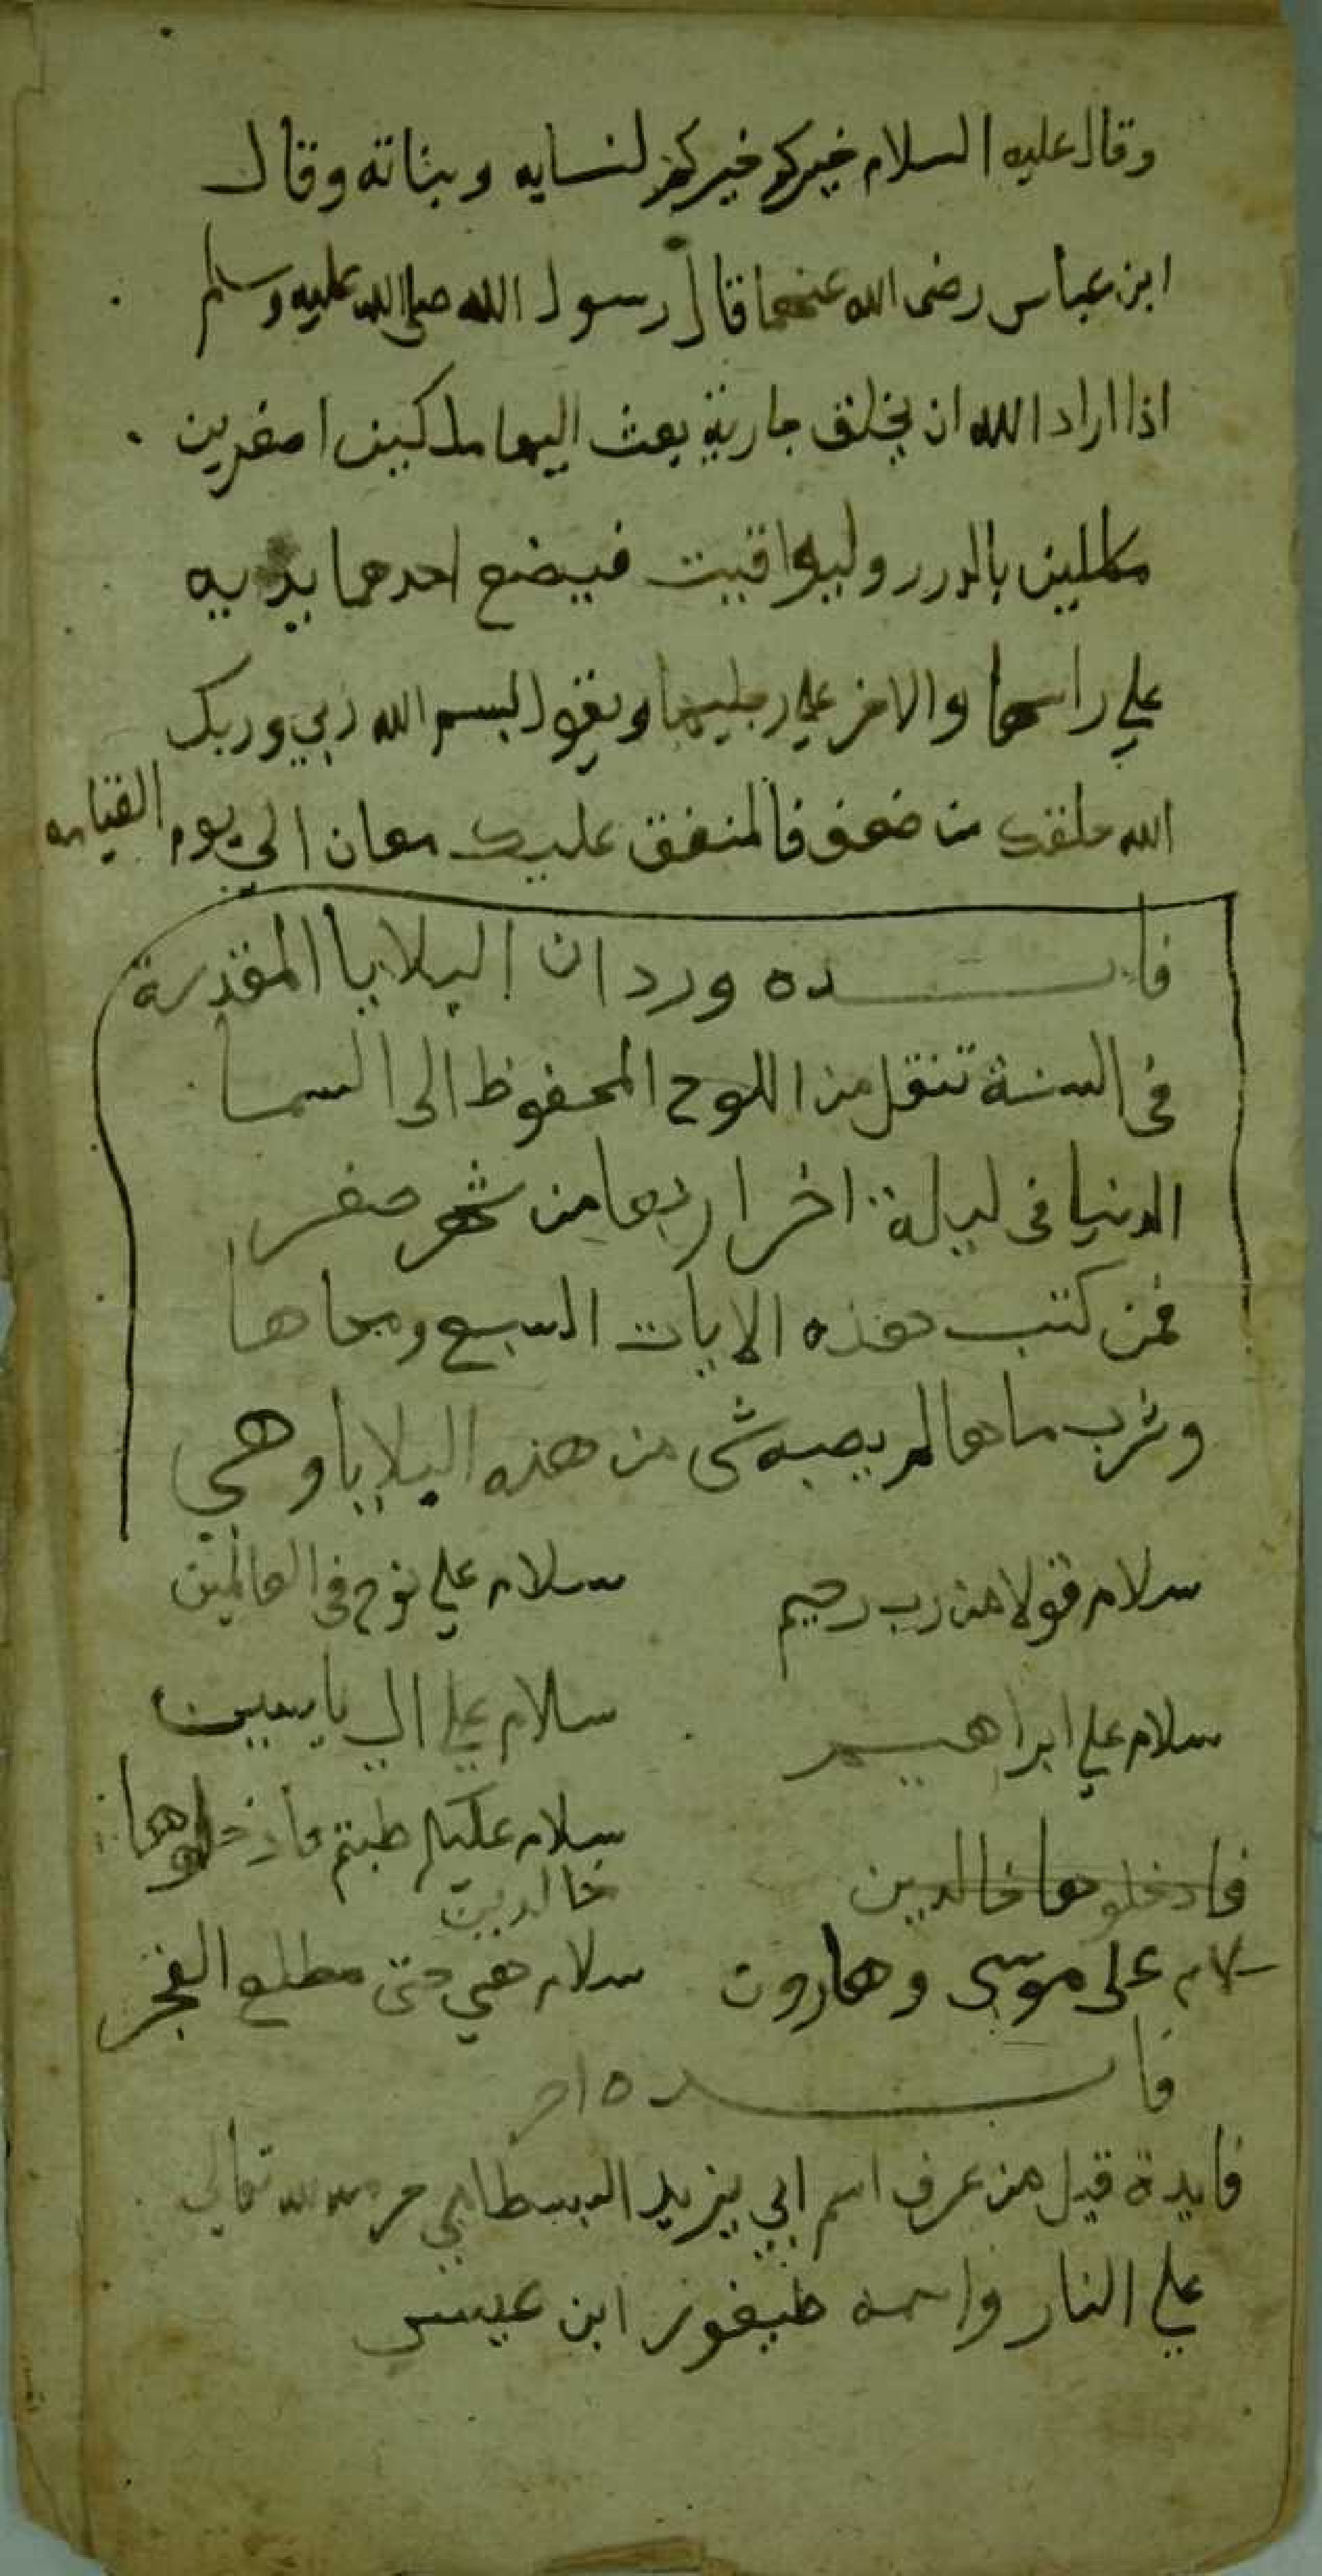 وقال عليه السلام خيركم خيركم لنسايه وبناته وقال
ابن عباس رضى الله عنهما قال رسول الله صلى الله عليه وسلم
اذا اراد الله ان يخلق جارية بعث اليها ملكين اصفرين
مكللين بالدرر وليواقيت فيضع احدهما يديه
علي راسها والاخر علي رجليها ويقول بسم الله ربي وربك
الله خلقك من ضعف فالمنفق عليك معان الي يوم القيامه
فايـــده ورد ان البلايا المقدرة
فى السنة تنقل من اللوح المحفوظ الى السما
الدنيا فى ليلة اخر اربعا من شهر صفر
فمن كتب هذه الايات السبع ومحاها
وشرب ماها لم يصبه شى من هذه البلايا وهي
سلام قولا من رب رحيم سلام علي نوح في العالمين
سلام علي ابراهيم سلام علي ال ياسين
فادخلوها خالدين سلام عليكم طبتم فادخلوها
خالدين
سلام على موسى وهارون سلام هي حتى مطلع الفجر
فايـــده
فايدة قيل من عرف اسم ابي يزيد البسطامي تعالي
علي النار واسمه طيفور ابن عيسي